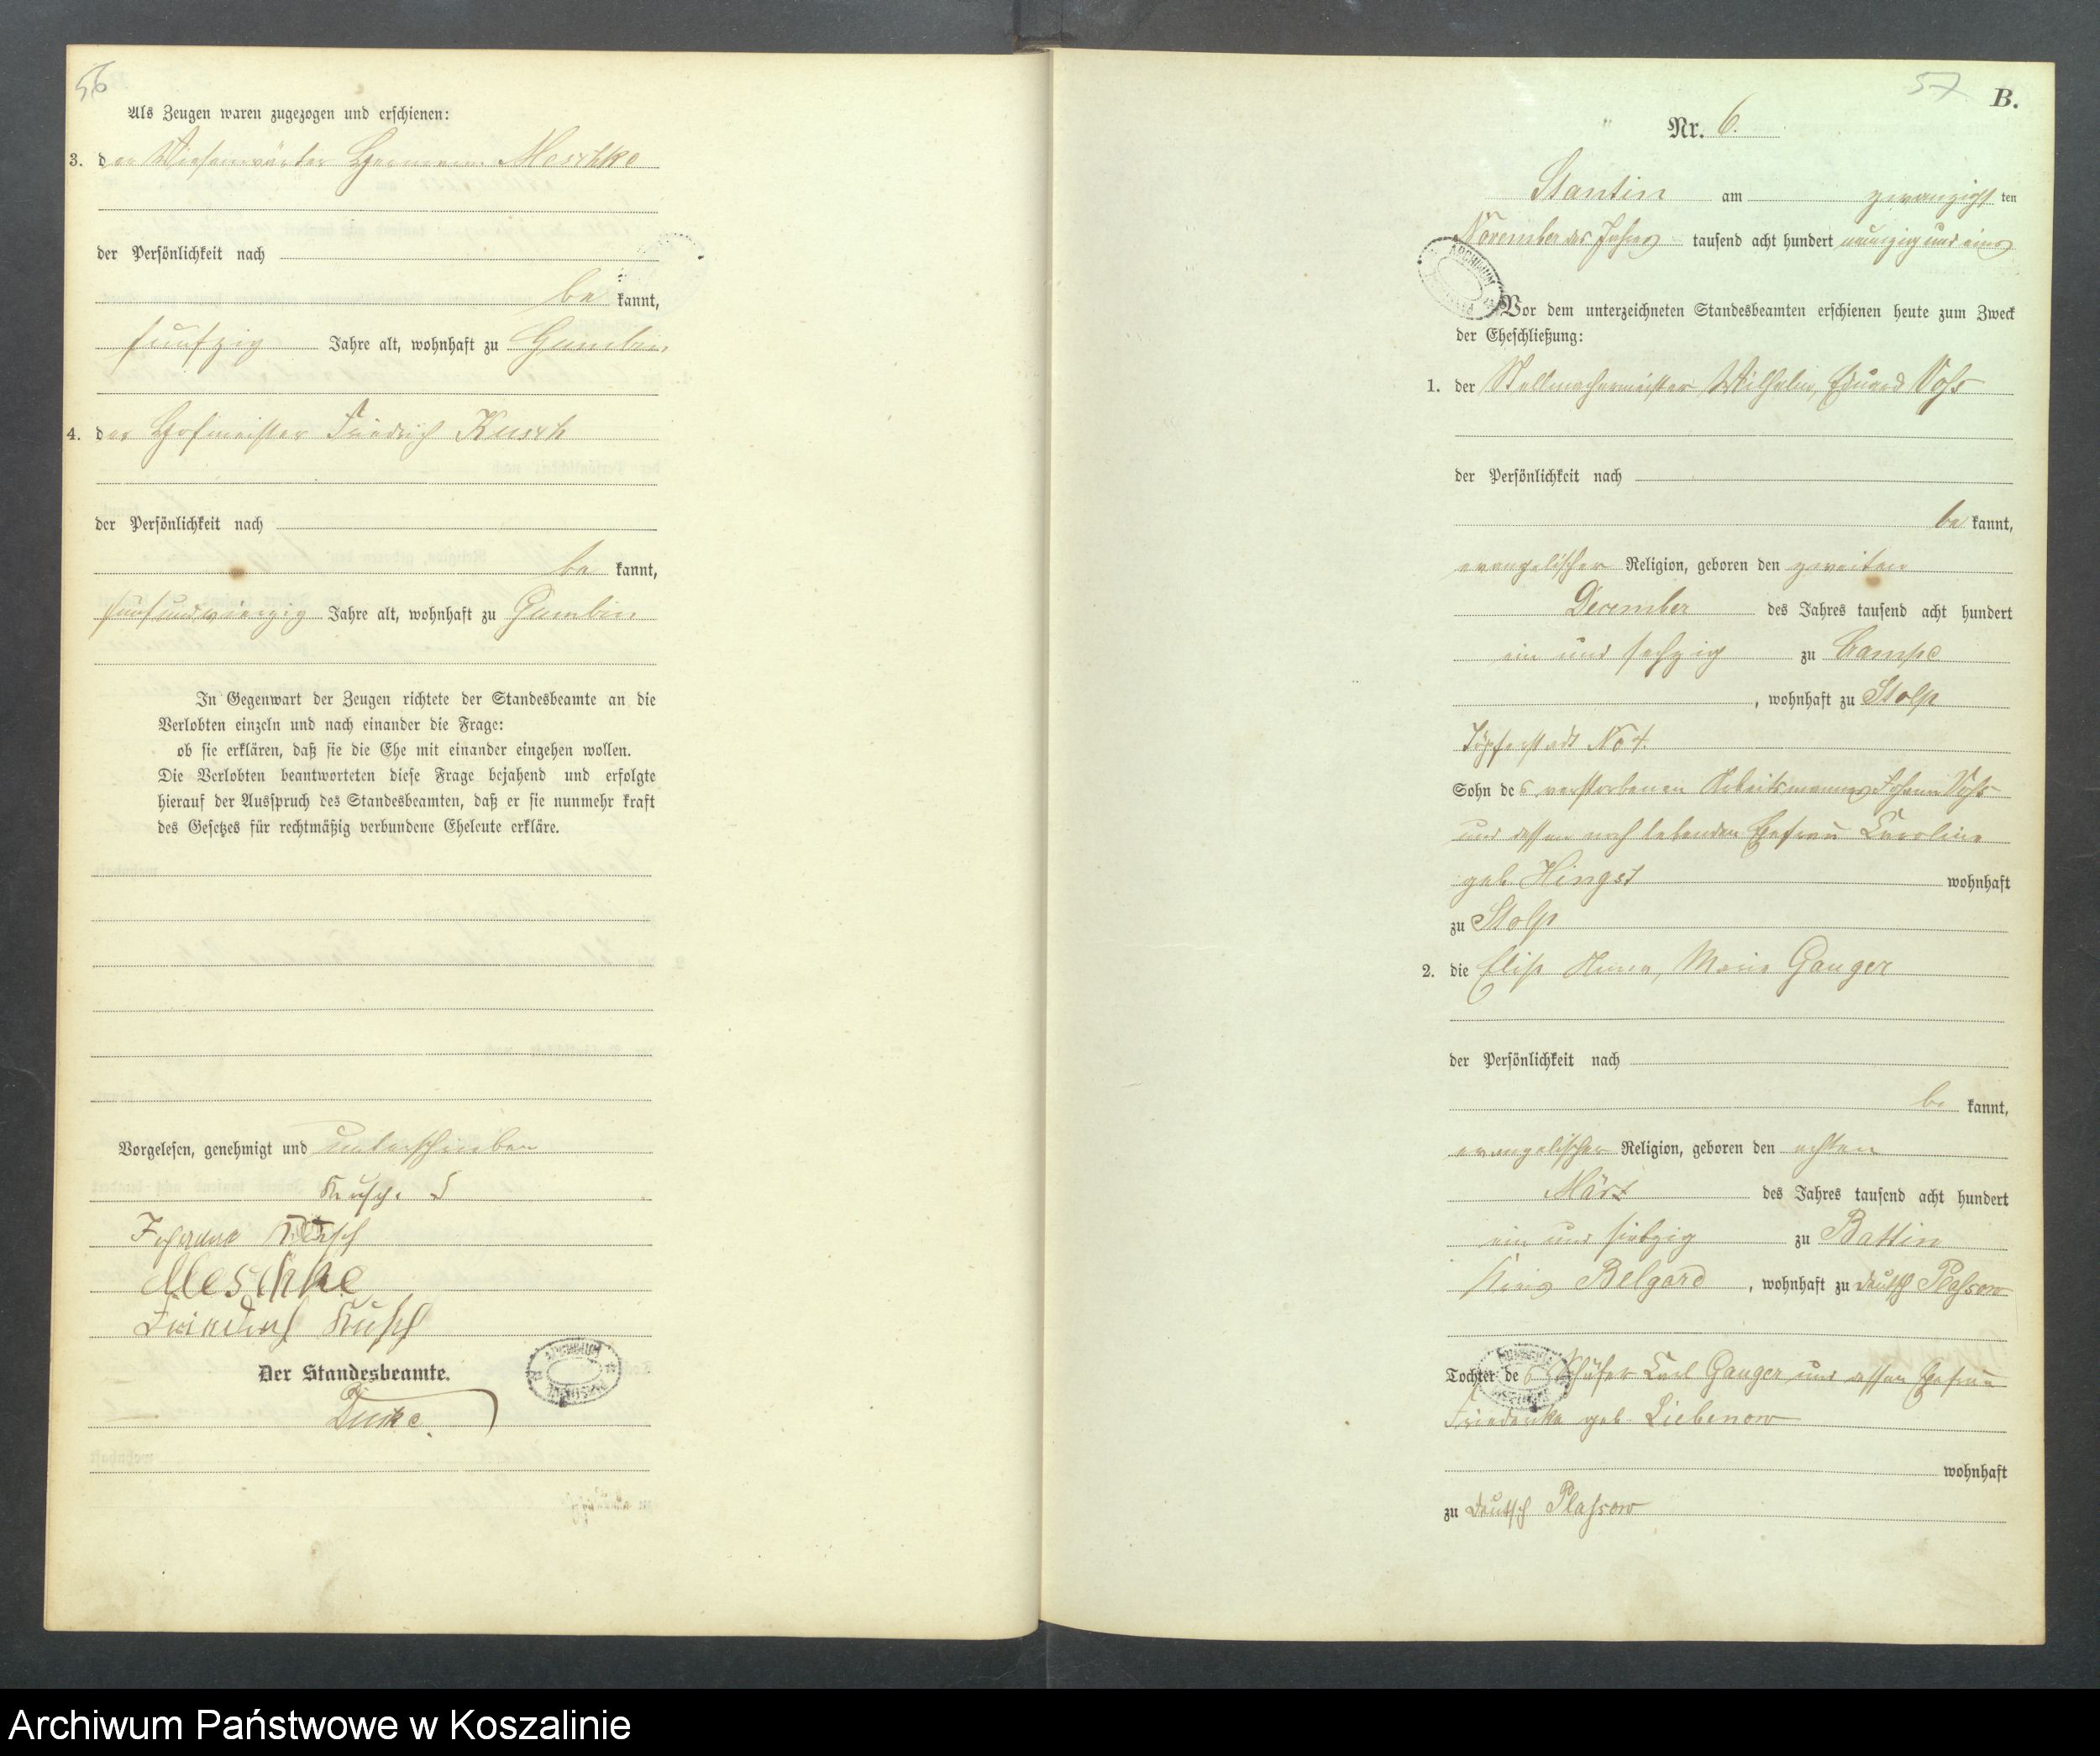 56
Als Zeugen waren zugezogen und erschienen:
3. der Wiesenwärter Hermann Meschke
der Persönlichkeit nach
be kannt,
funfzig Jahre alt, wohnhaft zu Gumbin
4. der Hofmeister Friedrich Kusch
der Persönlichkeit nach
be kannt,
fünfundvierzig Jahre alt, wohnhaft zu Gumbin
In Gegenwart der Zeugen richtete der Standesbeamte an die
Verlobten einzeln und nach einander die Frage:
ob sie erklären, daß sie die Ehe mit einander eingehen wollen.
Die Verlobten beantworteten diese Frage bejahend und erfolgte
hierauf der Ausspruch des Standesbeamten, daß er sie nunmehr kraft
des Gesetzes für rechtmäßig verbundene Eheleute erkläre.
Vorgelesen, genehmigt und unterschrieben
Kusch
Meschke
Friedrich Kusch
Der Standesbeamte.
57
B.
Nr. 6.
Stantin am zwanzigst ten
November des Jahres tausend acht hundert neunzig und eins
Vor dem unterzeichneten Standesbeamten erschienen heute zum Zweck
der Eheschließung:
1. der Stellmachermeister Wilhelm Eduard Voß
der Persönlichkeit nach
be kannt,
evangelischer Religion, geboren den zweiten
December des Jahres tausend acht hundert
ein und sechzig zu Campe
, wohnhaft zu Stolp
Töpferstadt No 4.
Sohn des verstorbenen Arbeitsmannes Johann Voß
und dessen noch lebenden Ehefrau Caroline
geb. Hingst wohnhaft
zu Stolp
2. die Elise Anna, Marie Gauger
der Persönlichkeit nach
be kannt,
evangelischer Religion, geboren den achten
März des Jahres tausend acht hundert
ein und siebzig zu Battin
Kreis Belgard, wohnhaft zu Deutsch Plassow
Tochter des Schäfer Carl Gauger und dessen Ehefrau
Friederike geb. Liebenow
wohnhaft
zu Deutsch Plassow
Archiwum Państwowe w Koszalinie